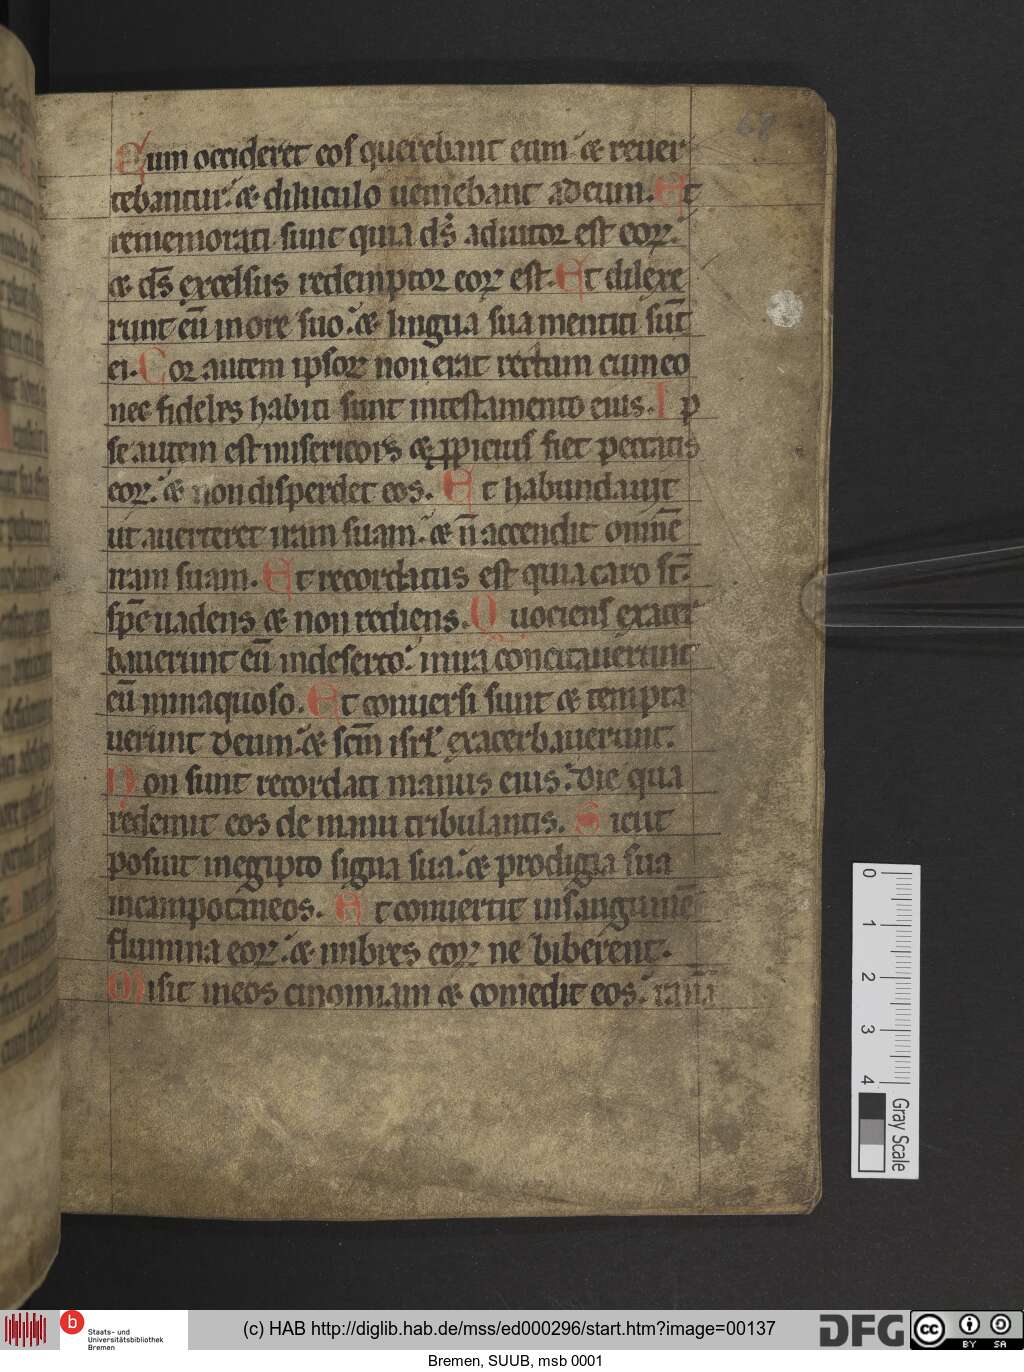 68
Cum occideret eos querebant eum ⁊ reuer
tebantur. ⁊ diluculo ueniebant ad eum. Et
rememorati sunt quia ds̄ adiutor est eoꝝ.
⁊ ds̄ excelsus redemptor eoꝝ est. Et dilexe
runt eū in ore suo. ⁊ lingua sua mentiti sūt
ei. Cor autem ipsoꝝ non erat rectum cum eo
nec fideles habiti sunt in testamento eius. Ip
se autem est misericors ⁊ ꝓpicius fiet peccatis
eoꝝ. ⁊ non disperdet eos. Et habundauit
ut auerteret iram suam. ⁊ n̄ accendit omnē
iram suam. Et recordatus est quia caro st̄.
sp̄c uadens ⁊ non rediens. Quociens exacer
bauerunt eū in deserto. in ira concitauerunt
eū in inaquoso. Et conuersi sunt ⁊ tempta
uerunt deum. ⁊ scm̄ isrl̄ exacerbauerunt.
Non sunt recordati manus eius. die qua
redemit eos de manu tribulantis. Sicut
posuit in egipto signa sua. ⁊ prodigia sua
in campo taneos. Et conuertit in sanguinē
flumina eoꝝ. ⁊ imbres eoꝝ ne biberent.
Misit in eos cinomiam ⁊ comedit eos. ranā
0 1 2 3 4
Gray Scale
b Staats- und
Universitätsbibliothek
Bremen
(c) HAB http://diglib.hab.de/mss/ed000296/start.htm?image=00137
DFG
cc BY SA
Bremen, SUUB, msb 0001